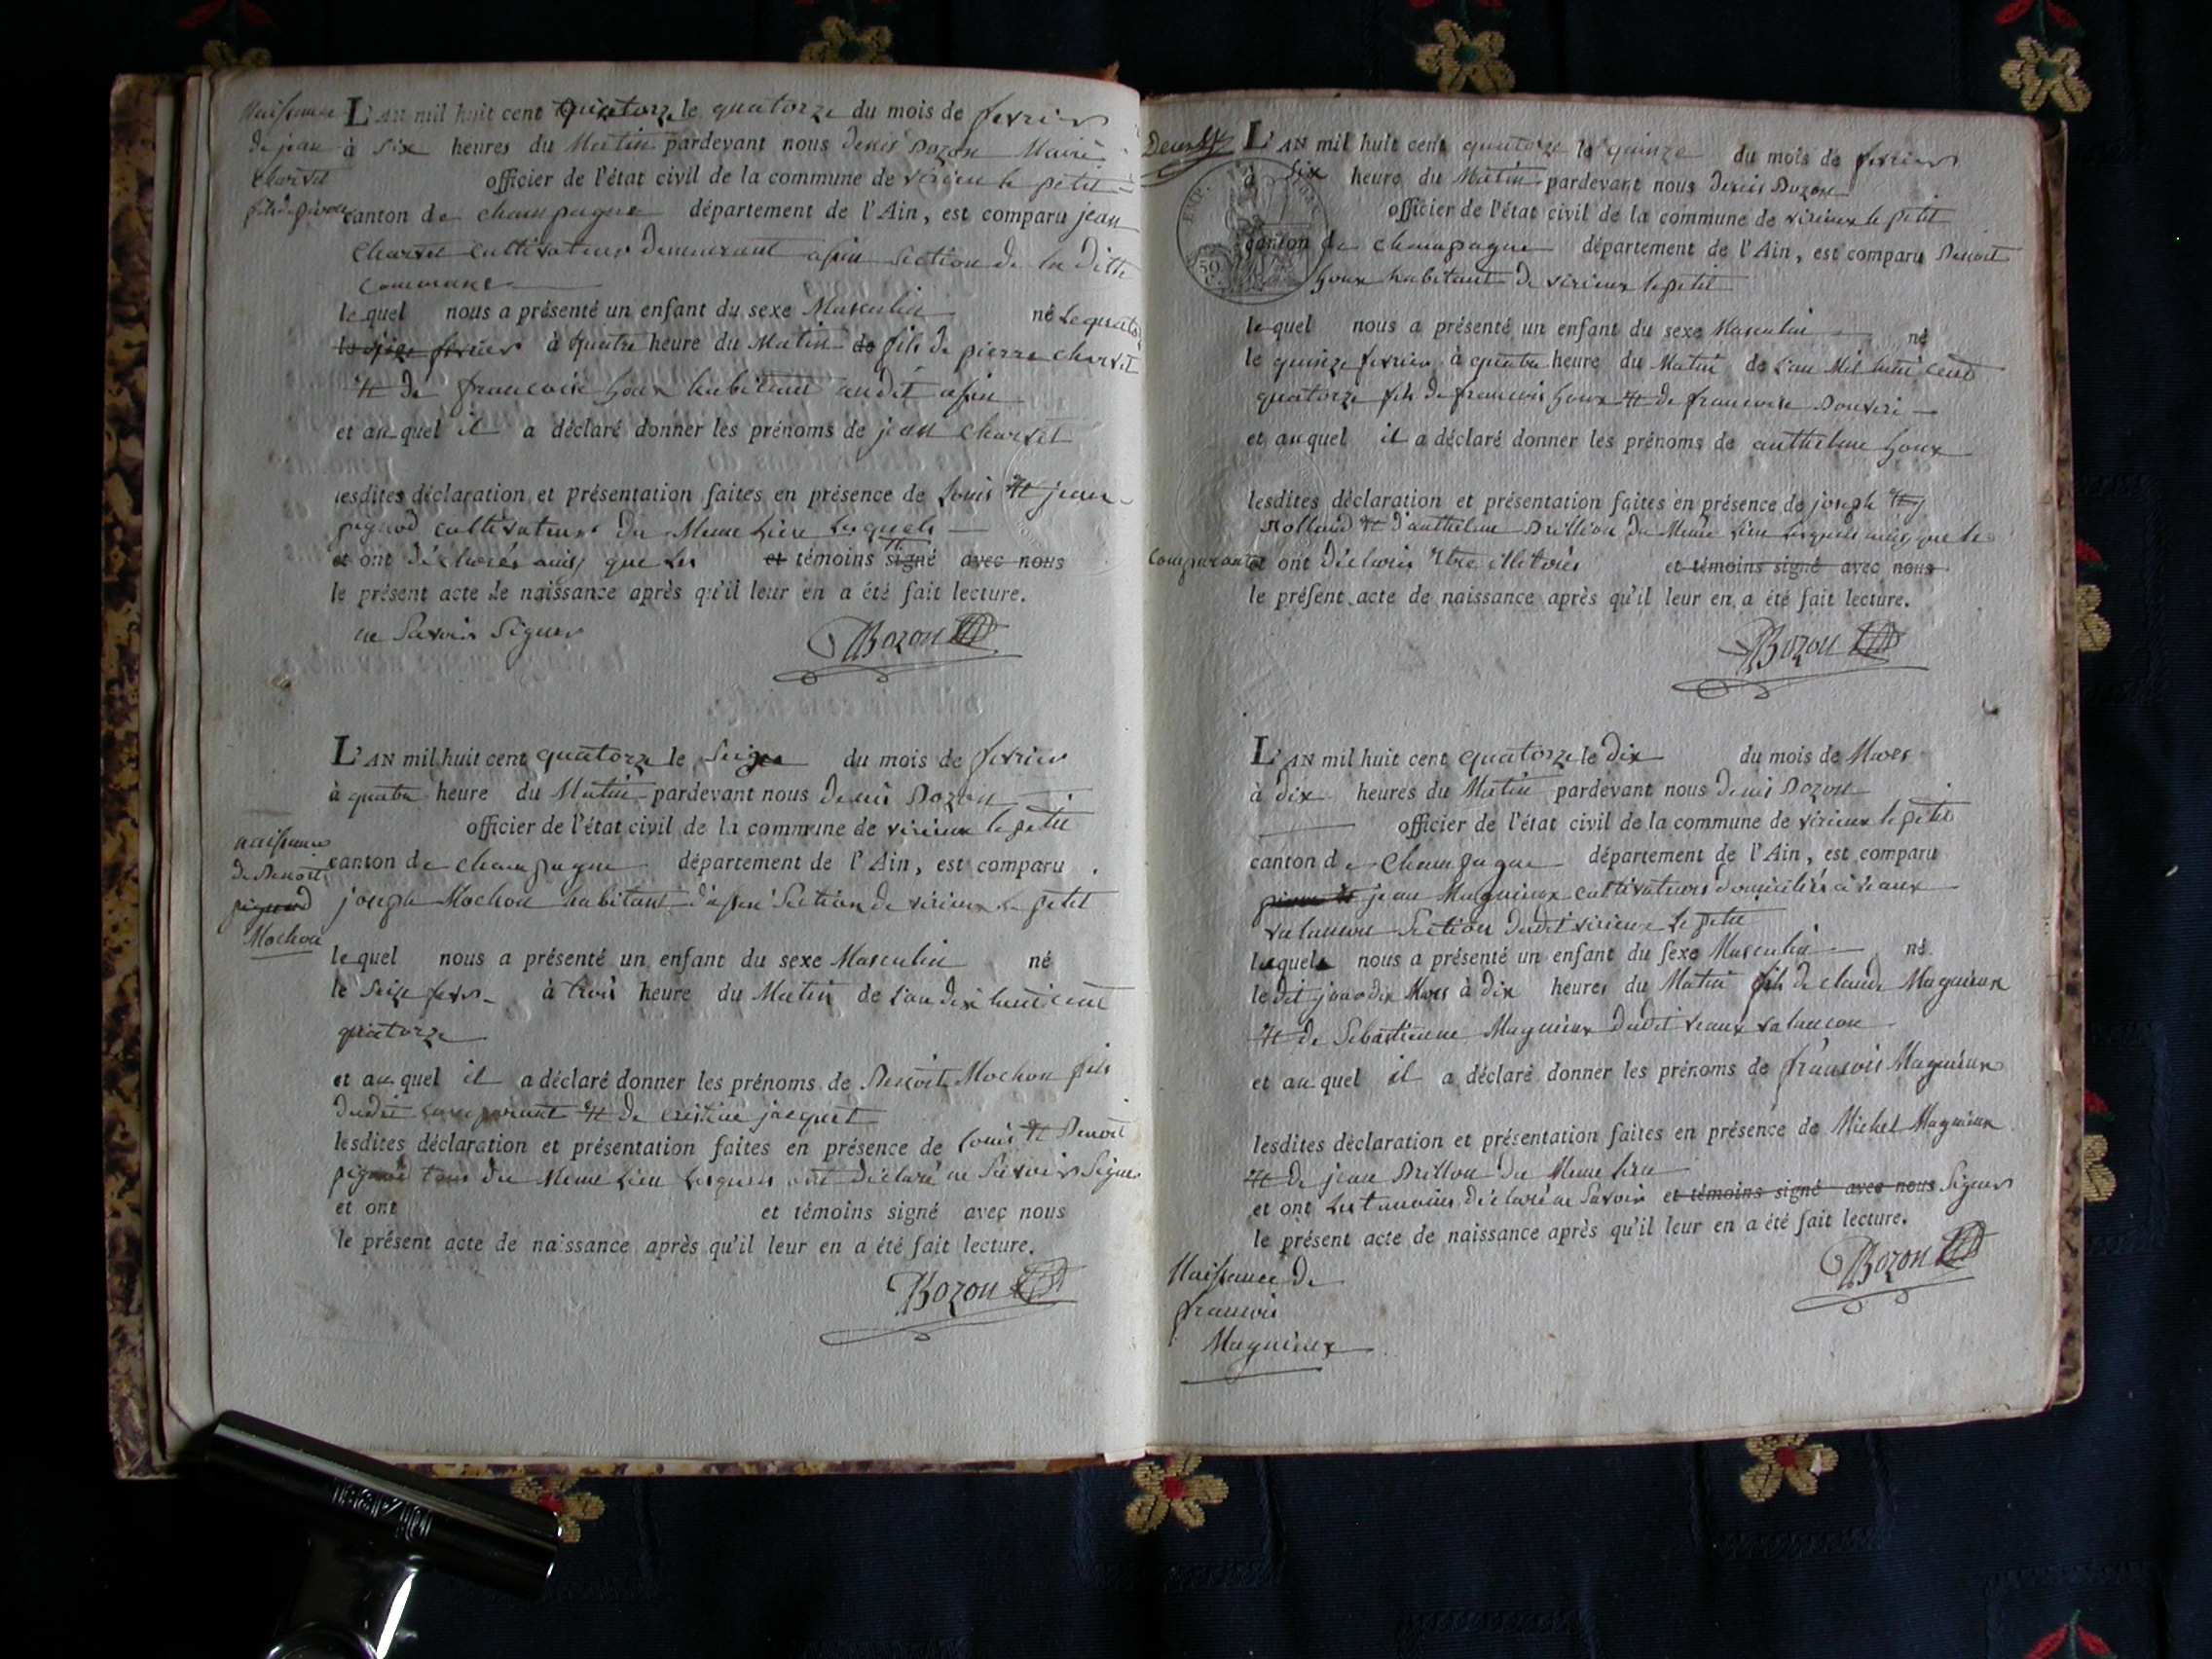 Naissance
de jean
Charvet
fils de pierre
L'AN mil huit cent quatorze le quatorze du mois de fevrier
à six heures du Matin pardevant nous denis Bozon Maire
officier de l'état civil de la commune de virieu le petit
canton de champagne département de l'Ain, est comparu jean
Charvet Cultivateur demeurant assin Section de la ditte
Commune
le quel nous a présenté un enfant du sexe Masculin né Le quato
fevrier à quatre heure du Matin de fils de pierre charvet
et de francoise houx habitant audit assin
et au quel il a déclaré donner les prénoms de jean Charvet
lesdites déclaration et présentation faites en présence de Louis et jean
pignod cultivateurs du Meme Lieu Lesquels
et ont déclarés ainsy que Les et témoins signé avec nous
le présent acte de naissance après qu'il leur en a été fait lecture.
ne Savoir Signer
Bozon
L'AN mil huit cent quatorze le Seize du mois de fevrier
à quatre heure du Matin pardevant nous denis Bozon
officier de l'état civil de la commune de virieux le petit
naissance
de Benoit
pignod
Mochon
canton de champagne département de l'Ain, est comparu
joseph Mochon habitant d'assin Section de virieux le petit
le quel nous a présenté un enfant du sexe Masculin né
le Seize fevr. à trois heure du Matin de L'an dix huit cent
quatorze
et au quel il a déclaré donner les prénoms de Benoit Mochon fils
dudit comparant et de cristine jacquet
lesdites déclaration et présentation faites en présence de Louis et Benoit
pignod tous du Meme Lieu Lesquels ont déclaré ne Savoir Signer
et ont et témoins signé avec nous
le présent acte de naissance après qu'il leur en a été fait lecture.
Bozon
L'AN mil huit cent quatorze le quinze du mois de fevrier
à Six heure du Matin pardevant nous denis Bozon
officier de l'état civil de la commune de virieux le petit
canton de champagne département de l'Ain, est comparu Benoit
houx habitant de virieux le petit
50
le quel nous a présenté un enfant du sexe Masculin né
le quinze fevrier à quatre heure du Matin de L'an Mil huit cent
quatorze fils de francois houx et de francoise
et au quel il a déclaré donner les prénoms de anthelme houx
lesdites déclaration et présentation faites en présence de joseph
et d'anthelme Brillon du Meme Lieu Lesquels ainsy que le
Comparant et ont déclarés être illetrés et témoins signé avec nous
le présent acte de naissance après qu'il leur en a été fait lecture.
Bozon
L'AN mil huit cent quatorze le dix du mois de Mars
à dix heures du Matin pardevant nous denis Bozon
officier de l'état civil de la commune de virieux le petit
canton de Champagne département de l'Ain, est comparu
jean Magnieux cultivateurs domiciliés à vaux
valancon Section dudit virieux Le petit
lequel nous a présenté un enfant du sexe Masculin né
le dit jour dix Mars à dix heures du Matin fils de claude Magnieux
et de Sebastienne Magnieux dudit vaux valancon
et au quel il a déclaré donner les prénoms de francois Magnieux
lesdites déclaration et présentation faites en présence de Michel Magnieux
et de jean Brillon du Meme Lieu
et ont Les temoins déclaré ne Savoir et témoins signé avec nous Signer
le présent acte de naissance après qu'il leur en a été fait lecture.
Bozon
Naissance de
francois
Magnieux